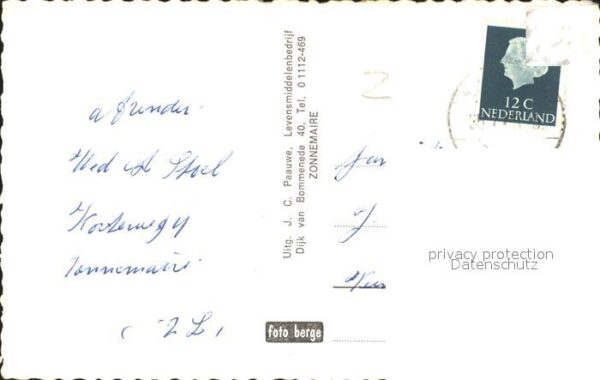 afzender.
Wed A Stoel
Kosterweg 7
Zonnemaire
(ZL)
Uitg. J. C. Paauwe, Levensmiddelenbedrijf
Dijk van Bommenede 40, Tel. 01112-469
ZONNEMAIRE
foto berge
2
12 C
NEDERLAND
J.
privacy protection
Datenschutz